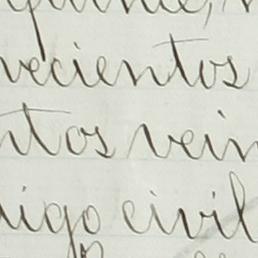 vecientos
ntos vein
digo civil